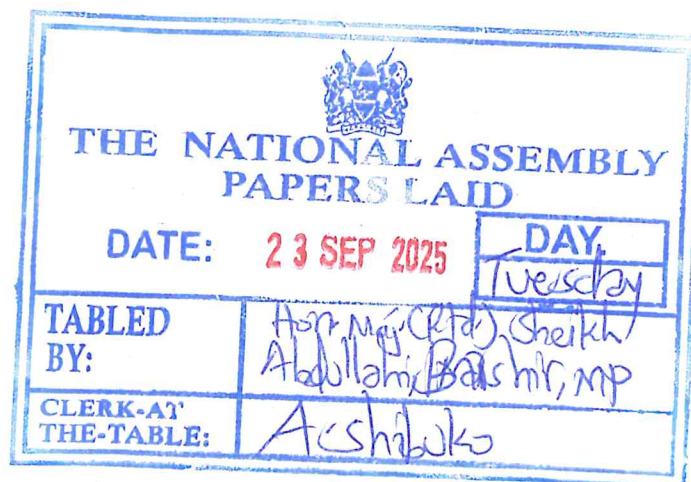 THE NATIONAL ASSEMBLY
PAPERS LAID
DATE: 23 SEP 2025
DAY.
Tuesday
TABLED BY:
Hon. Maj. (Rtd.) Sheikh
Abdullahi Bashir, MP
CLERK-AT THE-TABLE: